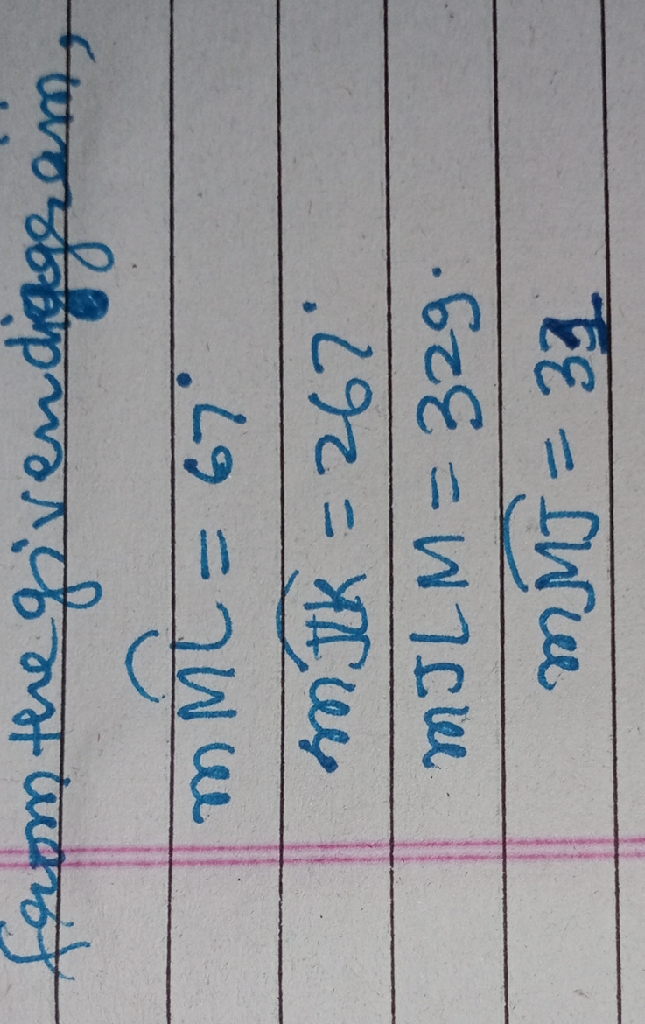 from the given diagram,
mML = 67°
mJIK = 267°
mJLM = 329°
mMJ = 31